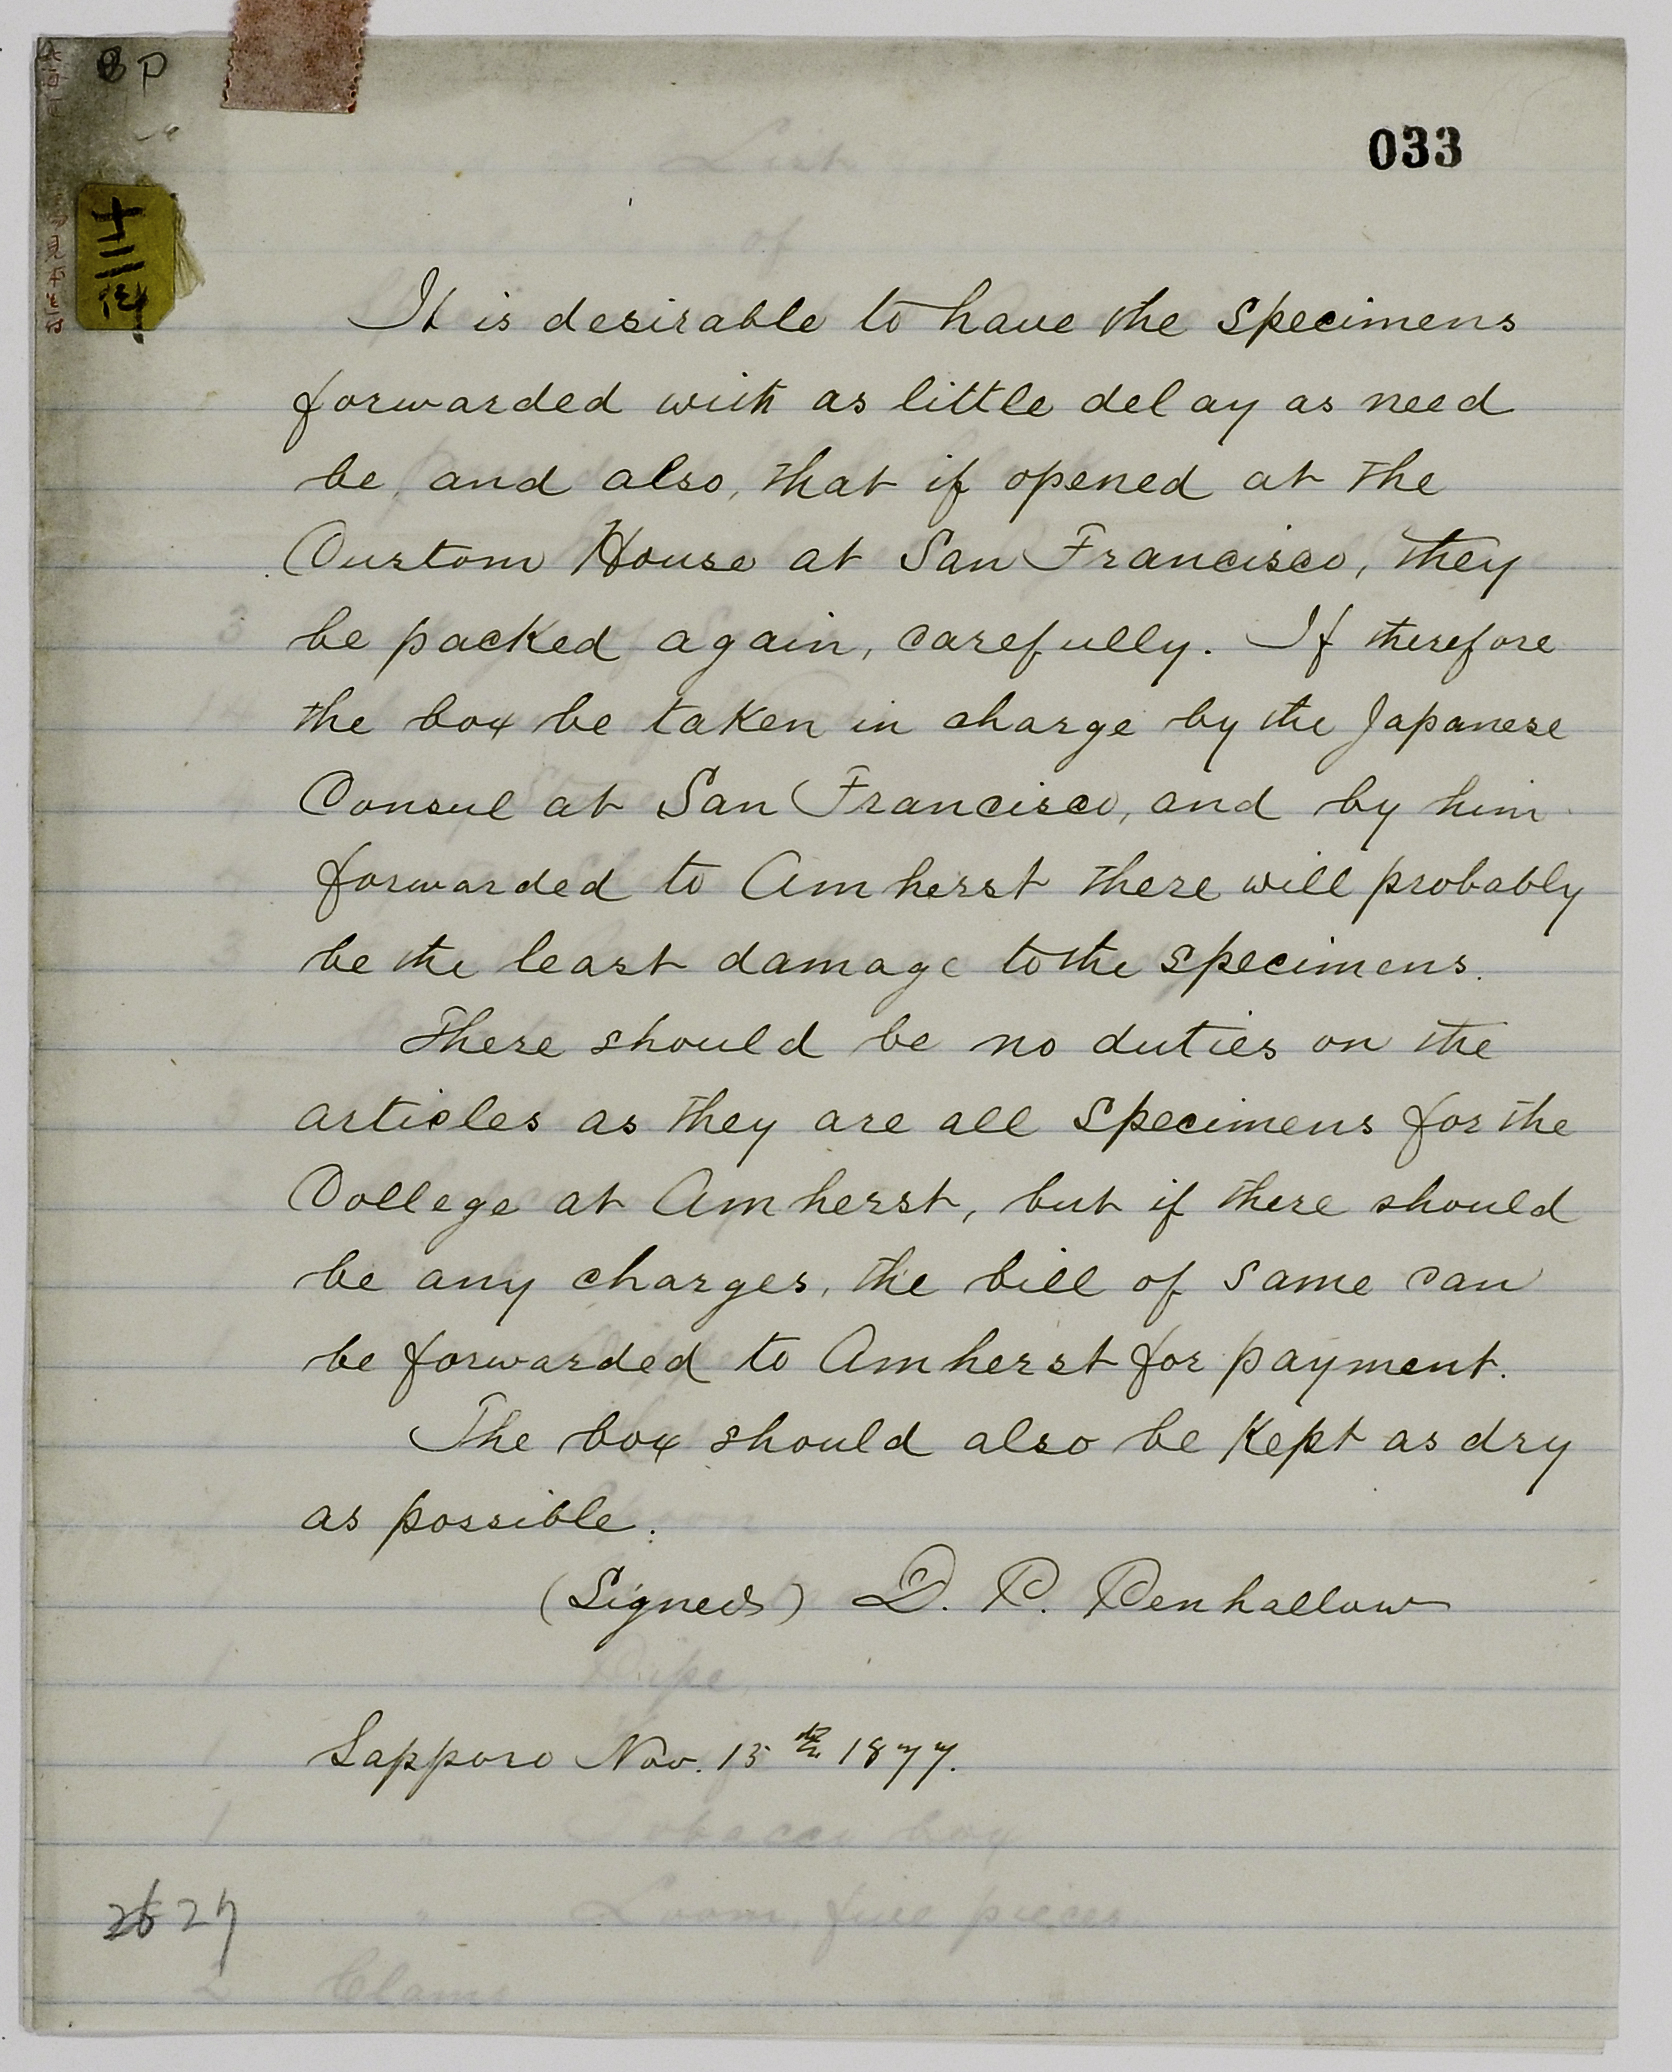 8 P
033
十二
It is desirable to have the specimens
forwarded with as little delay as need
be, and also, that if opened at the
Custom House at San Francisco, they
be packed again, carefully. If therefore
the box be taken in charge by the Japanese
Consul at San Francisco, and by him
forwarded to Amherst there will probably
be the least damage to the specimens.
There should be no duties on the
articles as they are all specimens for the
College at Amherst, but if there should
be any charges, the bill of same can
be forwarded to Amherst for payment.
The box should also be kept as dry
as possible.
(Signed) D. P. Penhallow
Sapporo Nov. 15th 1877.
26 27